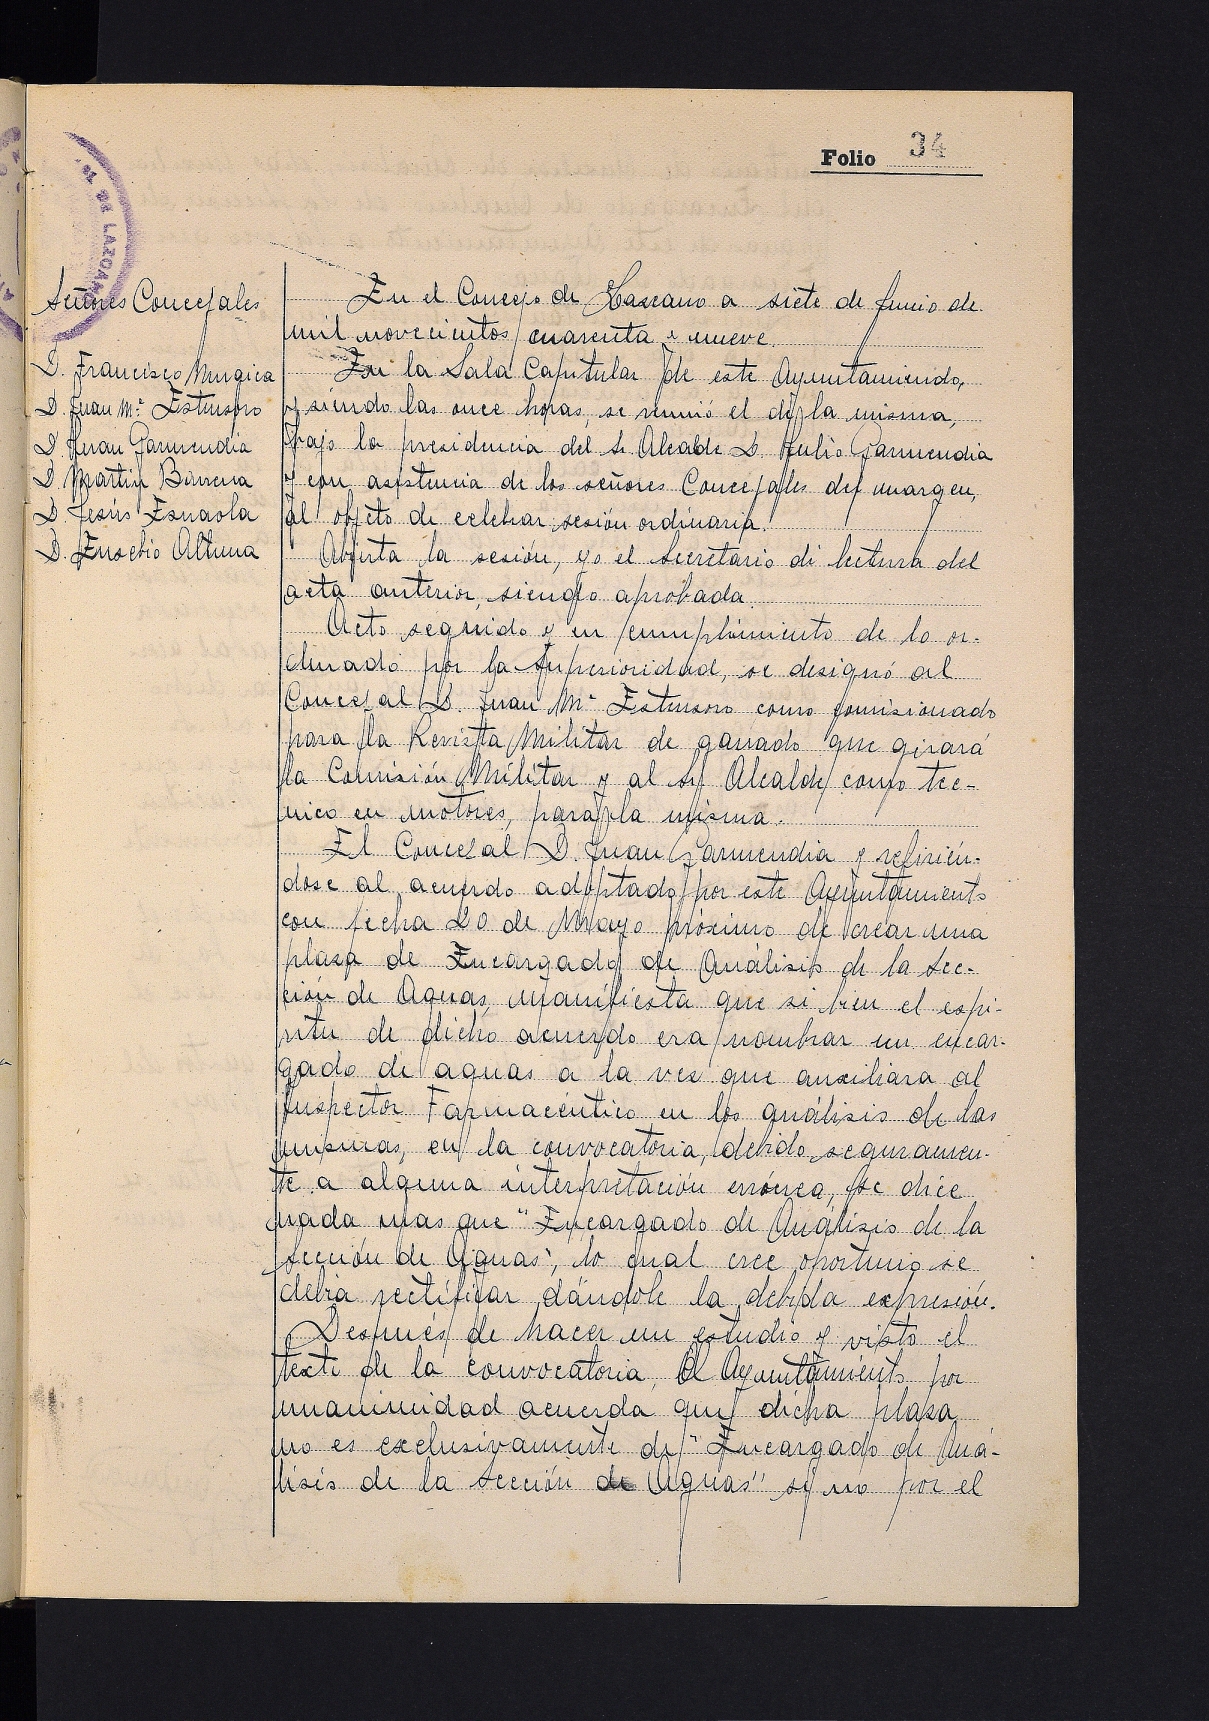 Folio 34
DE LAZCANO
Señores Concejales
D. Francisco Mugica
D. Juan Mª Estensoro
D. Juan Garmendia
D. Martin Barrena
D. Jesús Esnaola
D. Eusebio Altuna
En el Concejo de Lazcano a siete de Junio de
mil novecientos cuarenta y nueve.
En la Sala Capitular de este Ayuntamiendo,
y siendo las once horas, se reunió el de la misma,
bajo la presidencia del Sr Alcalde D. Julio Garmendia
y con asistencia de los señores Concejales del margen,
al objeto de celebrar sesión ordinaria.
Abierta la sesión, yo el Secretario di lectura del
acta anterior, siendo aprobada.
Acto seguido y en cumplimiento de lo or-
denado por la Superioridad, se designó al
Concejal D. Juan Mª Estensoro como comisionado
para la Revista Militar de ganado que girará
la Comisión Militar y al Sr Alcalde como tec-
nico en motores, para la misma.
El Concejal D. Juan Garmendia y refirién-
dose al acuerdo adoptado por este Ayuntamiento
con fecha 20 de Mayo próximo de crear una
plaza de Encargado de Análisis de la Sec-
ción de Aguas, manifiesta que si bien el espi-
ritu de dicho acuerdo era nombrar un encar-
gado de aguas a la vez que auxiliara al
Inspector Farmacéutico en los análisis de las
mismas, en la convocatoria, debido seguramen-
te a alguna interpretación errónea, se dice
nada mas que "Encargado de Análisis de la
Sección de Aguas", lo cual cree oportuno se
debia rectificar dándole la debida expresión.
Después de hacer un estudio y visto el
texto de la convocatoria, el Ayuntamiento por
unanimidad acuerda que dicha plaza
no es exclusivamente de "Encargado de Aná-
lisis de la Sección de Aguas" si no por el